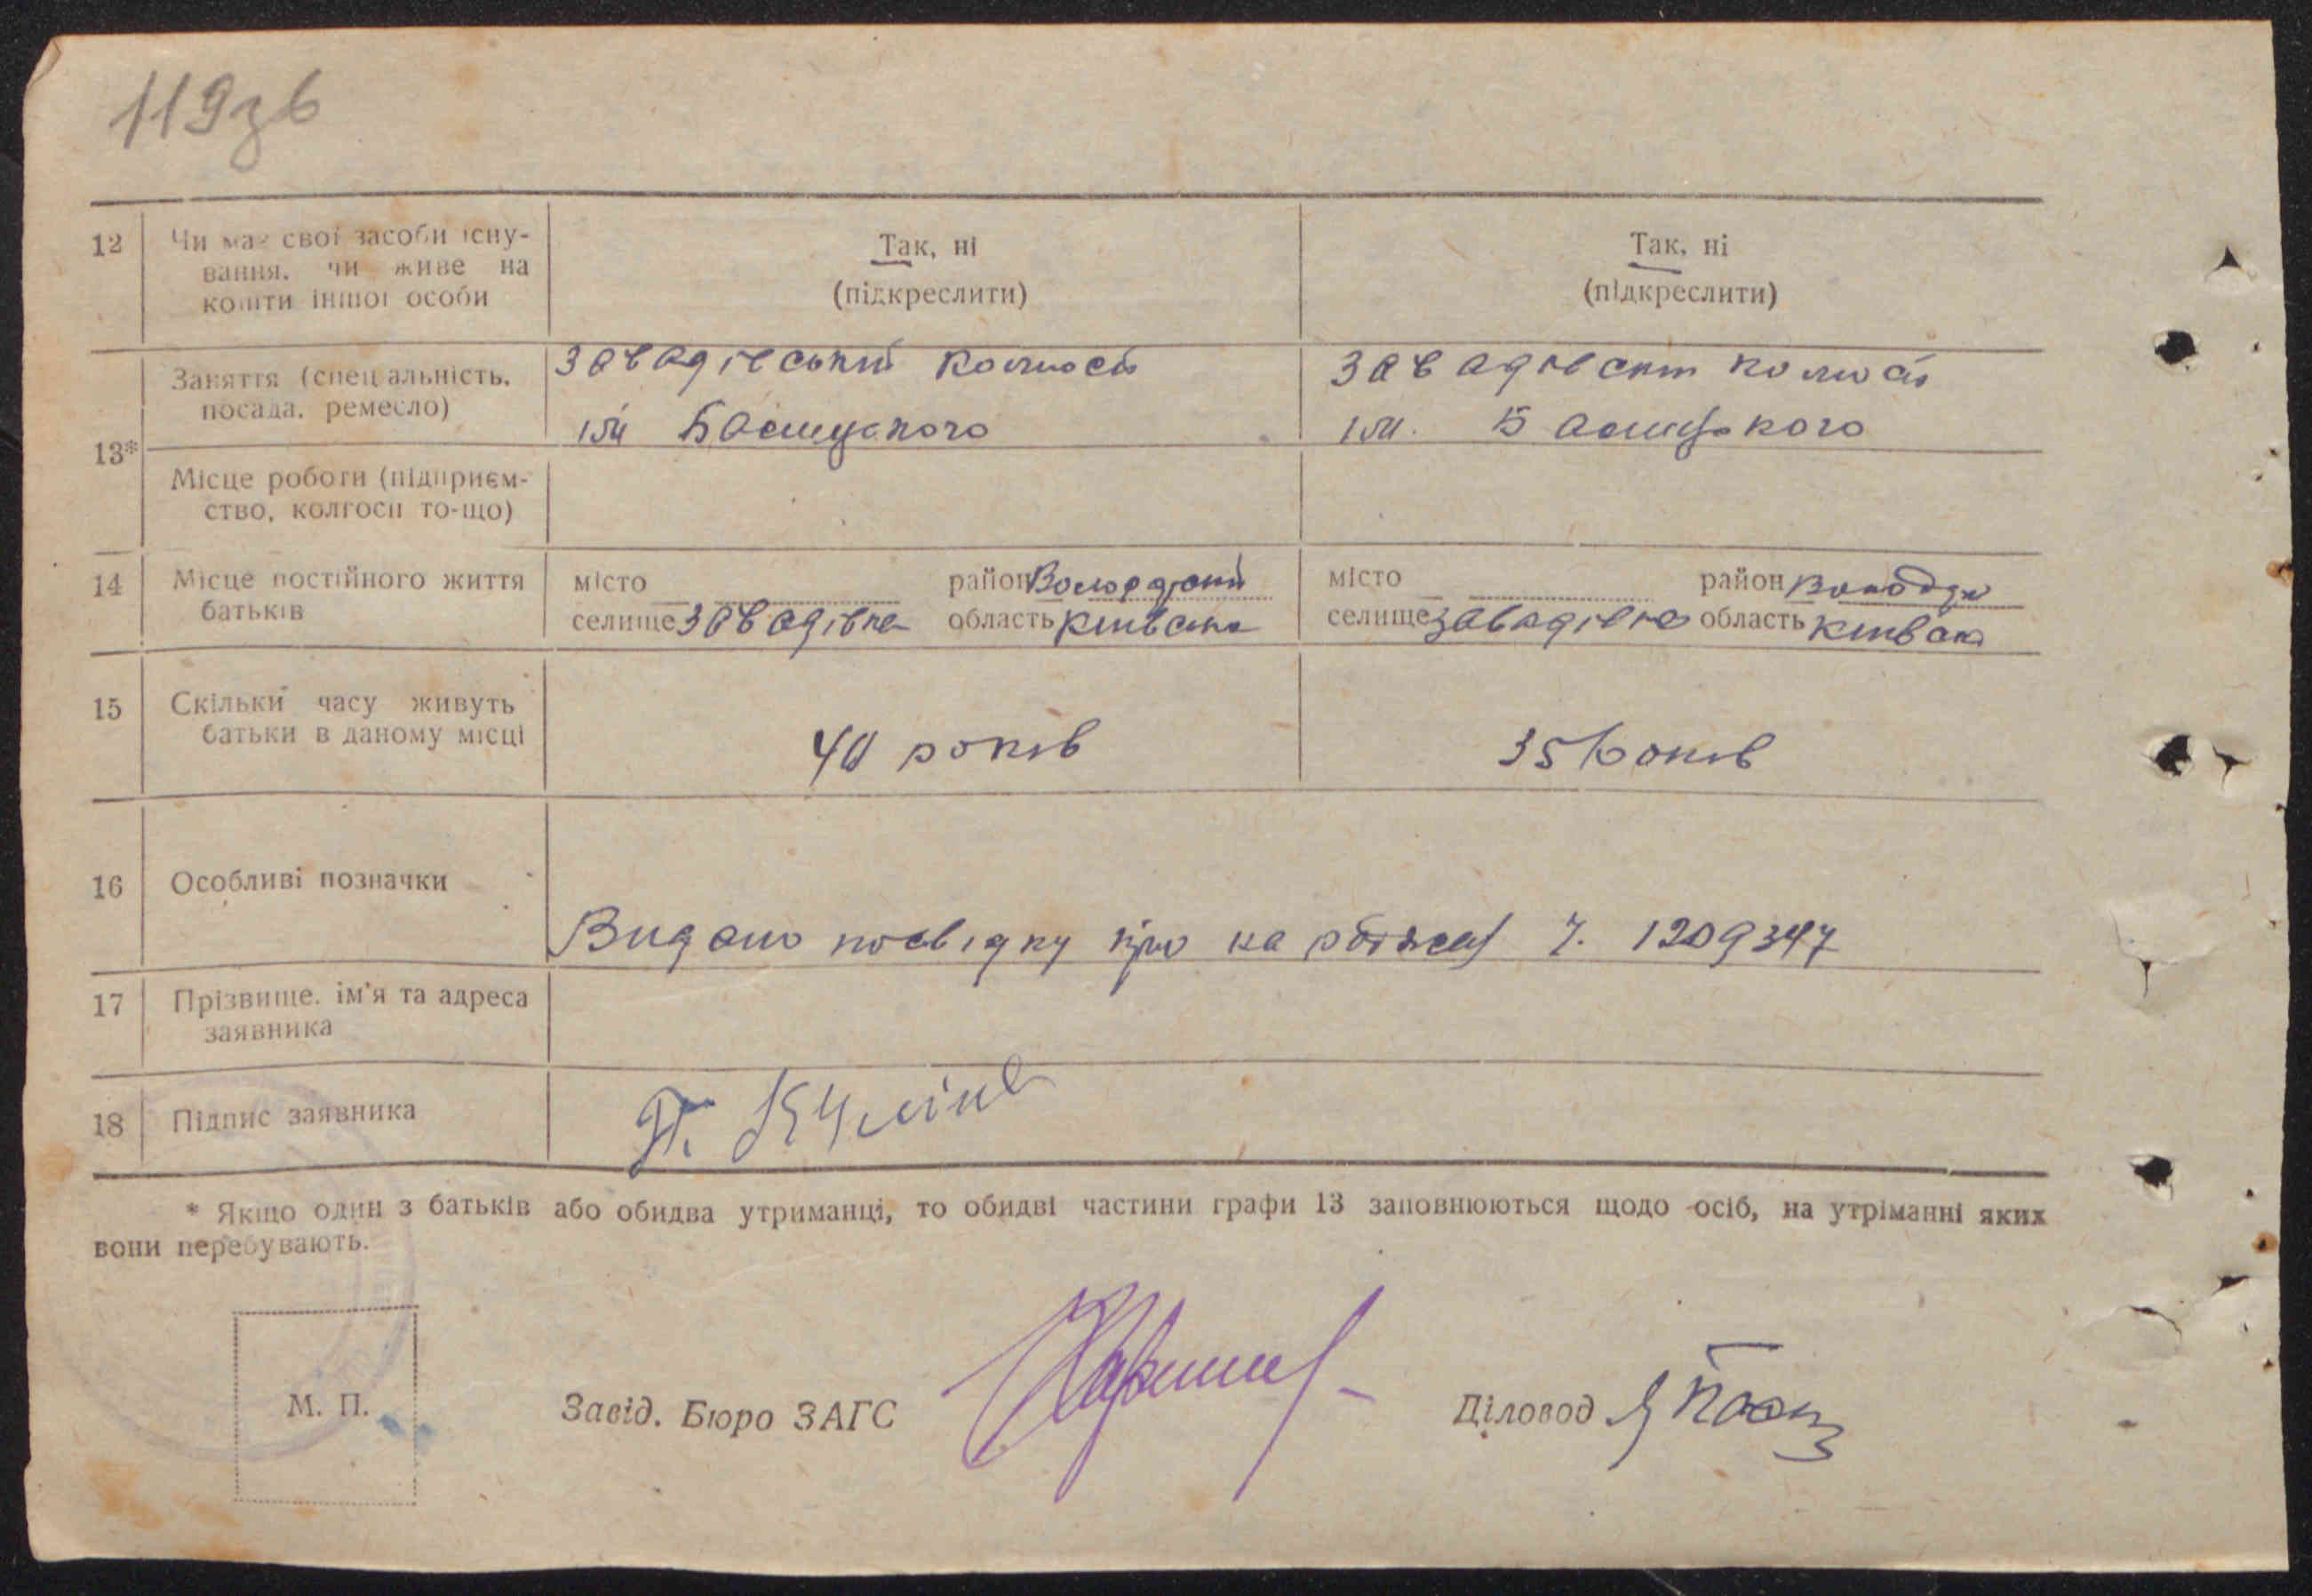 119зв
12 Чи має свої засоби існу-
вання, чи живе на
кошти іншої особи
Так, ні
(підкреслити)
Так, ні
(підкреслити)
13*
Заняття (спеціальність,
посада, ремесло)
Завадівський колгосп
ім
Завадівский колгосп
ім.
Місце роботи (підприєм-
ство, колгосп то-що)
14 Місце постійного життя
батьків
місто район
селище Завадівка область Київська
місто район
селище Завадівка область Київська
15 Скільки часу живуть
батьки в даному місці
40 років
35 років
16 Особливі позначки
Видано посвідку про народжен Ч. 1209347
17 Прізвище, ім'я та адреса
заявника
18 Підпис заявника
* Якщо один з батьків або обидва утриманці, то обидві частини графи 13 заповнюються щодо осіб, на утріманні яких
вони перебувають.
М. П.
Завід. Бюро ЗАГС
Діловод